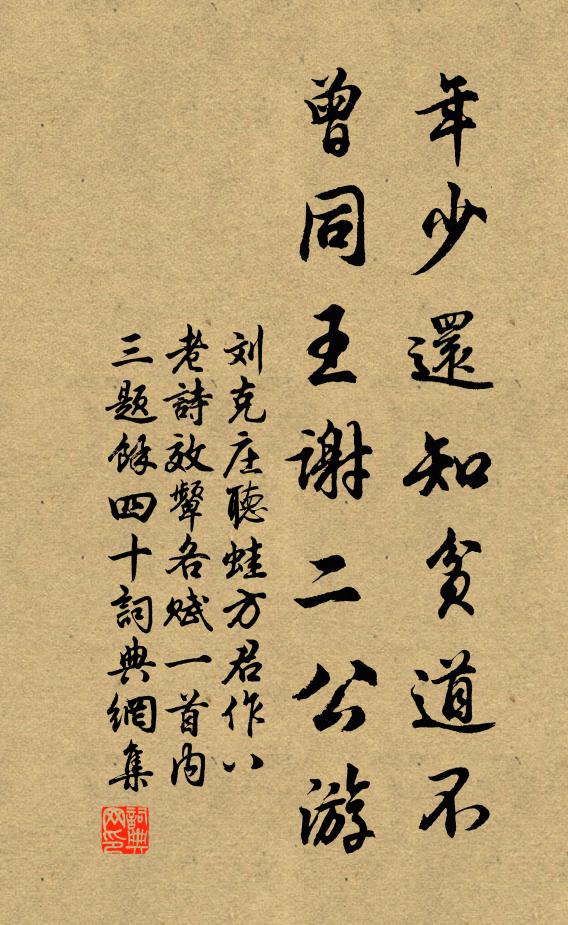 年少還知貧道不
曾同王謝二公游
刘克庄聽蛙方君作八
老詩效顰各賦一首内
三題餘四十詞典網集
詞典網印